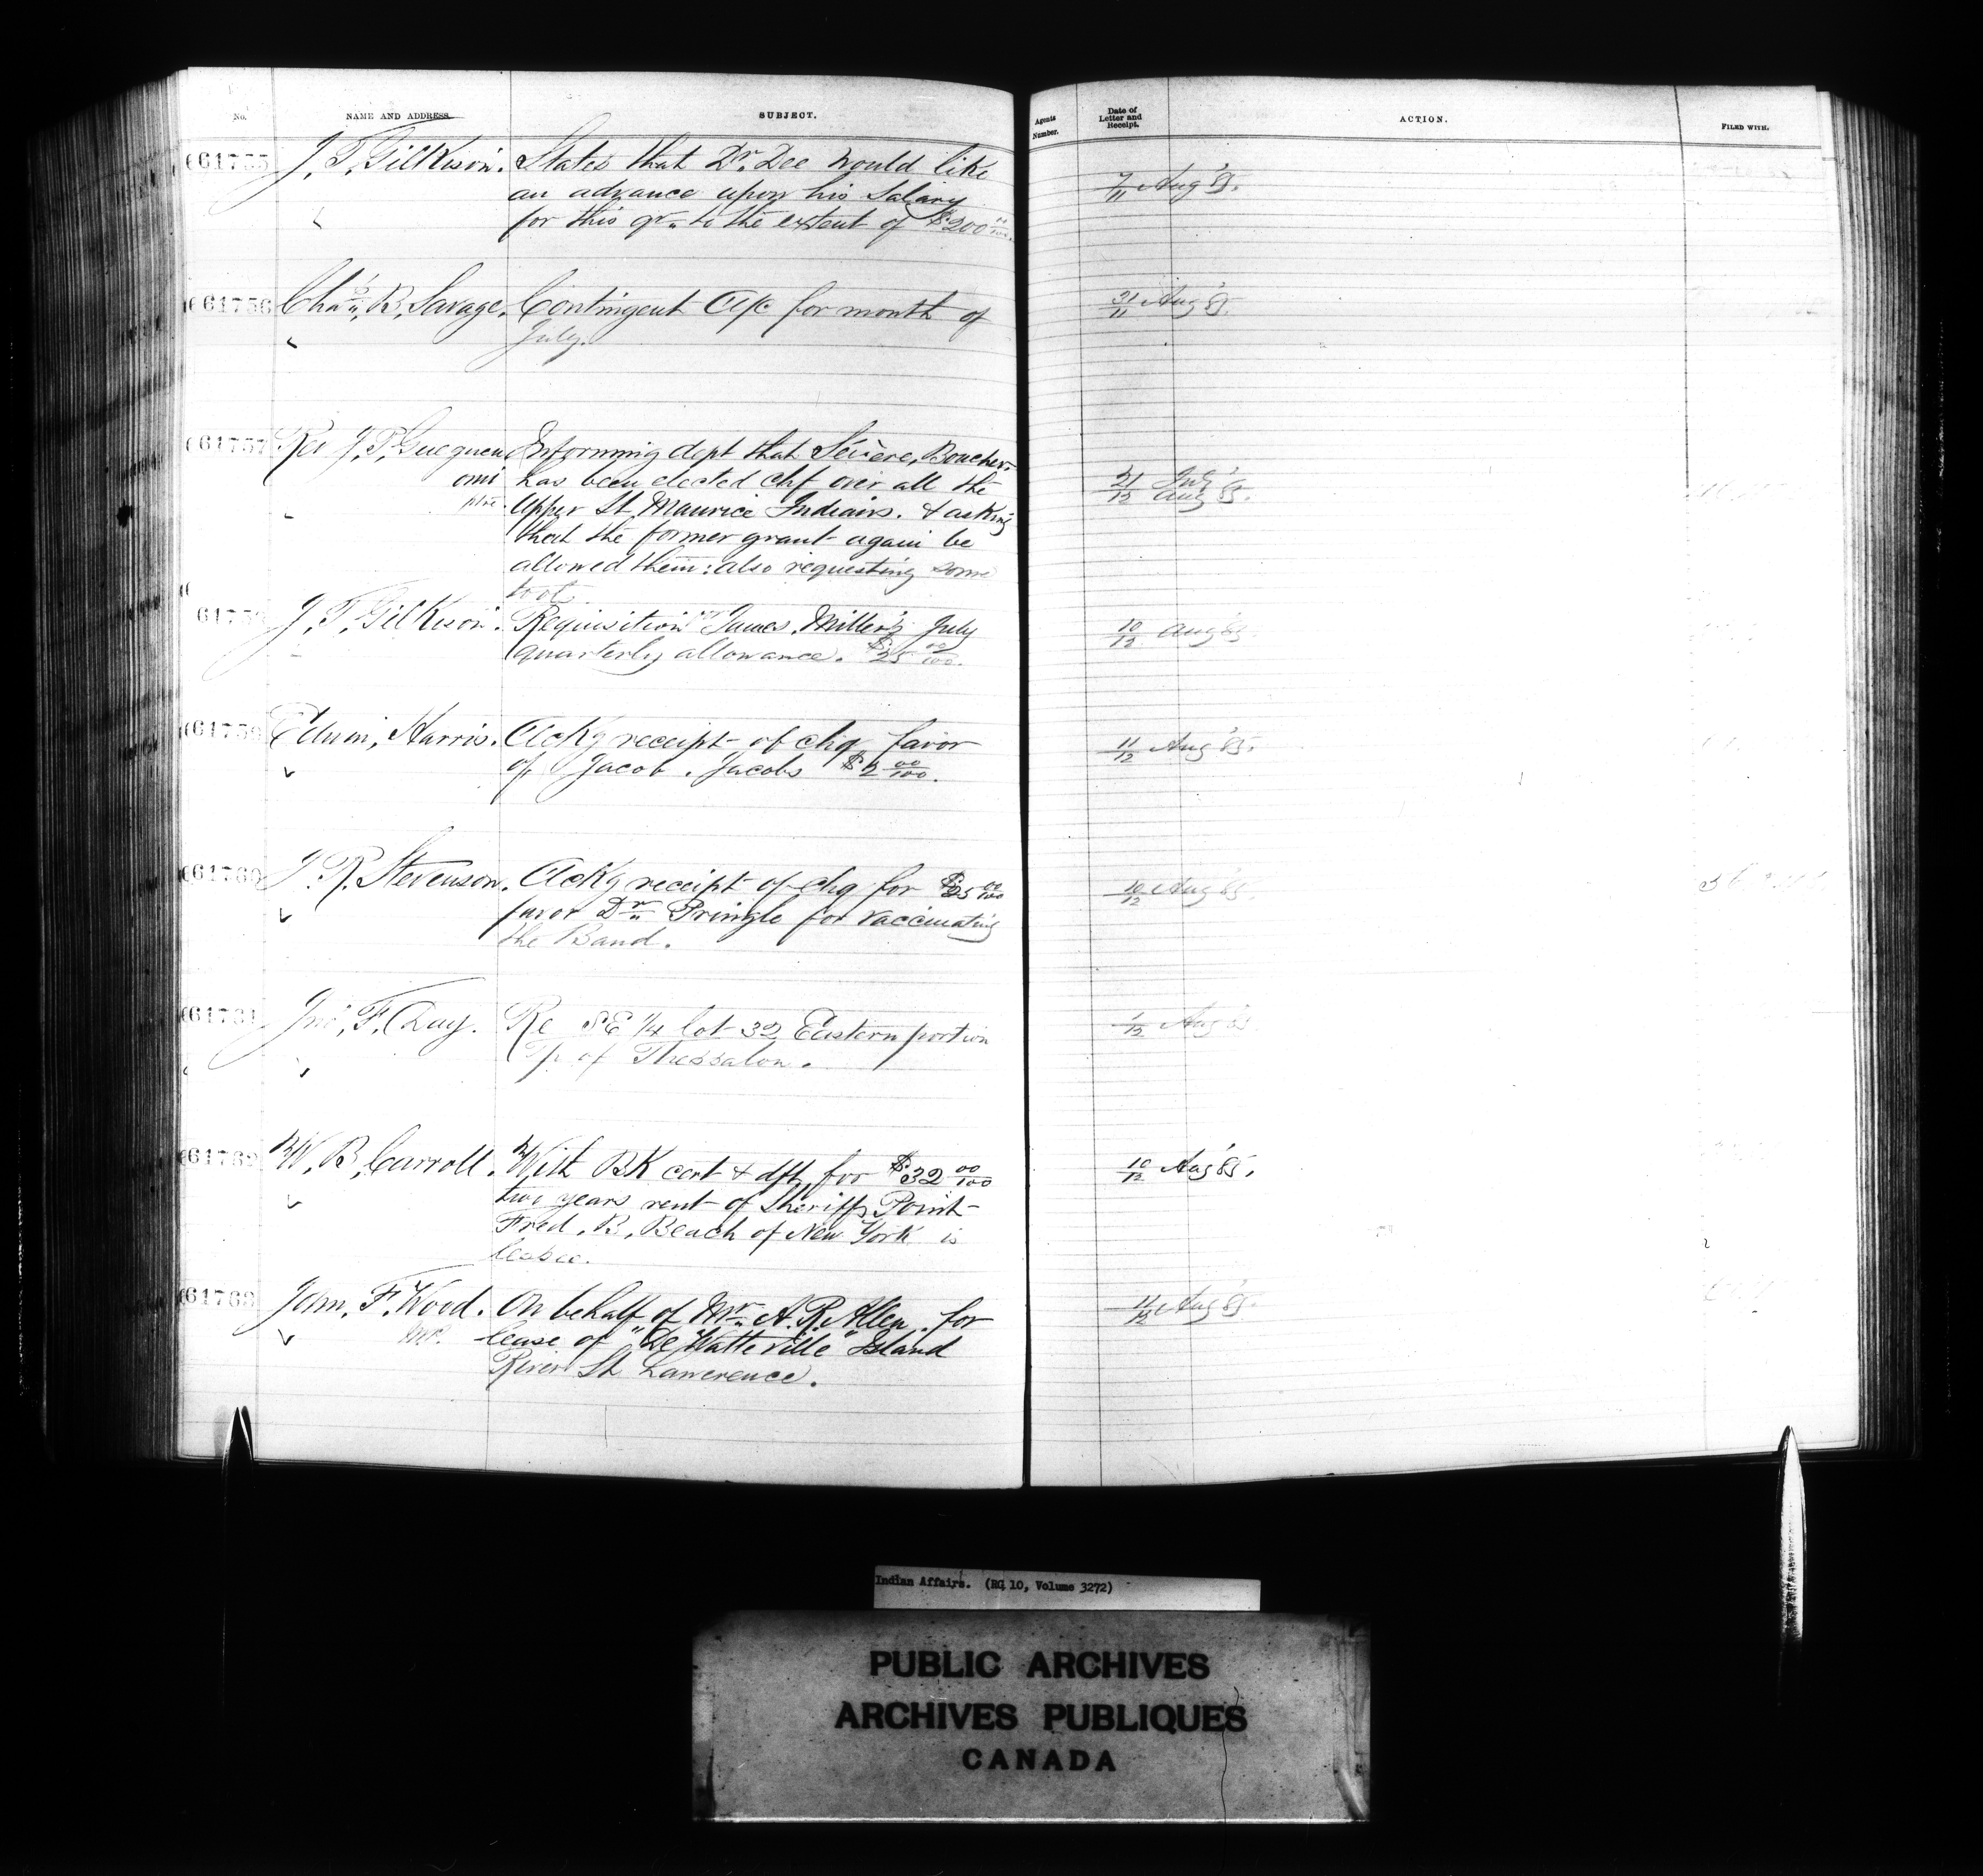 No.
NAME AND ADDRESS.
SUBJECT.
Agents Number.
Date of Letter and Receipt.
ACTION.
FILED WITH.
61755 J. T. Gilkison. States that Dr. Dee would like 7/11 Aug '85.
an advance upon his Salary
for this qr. to the extent of $200 00/100.
61756 Chas. B. Savage. Contingent a/c for month of 31/11 Aug 85.
July.
61757 Rev J. P. Gueguen Informing dept that Sévère, Boucher
omi has been elected Chf over all the 21/12 July Aug 85.
ptre. Upper St Maurice Indians. & asking
that the former grant again be
allowed them: also requesting some
61758 J. T. Gilkison. Requisition James, Miller's July 10/12 Aug 85
quarterly allowance. $25 00/100.
61759 Edwin, Harris. Ackg receipt of chq, favor 11/12 Aug '85.
of, Jacob, Jacobs $2 00/100.
61760 J. R. Stevenson. Ackg receipt of chq for $25 00/100 10/12 Aug 85
favor Dr. Pringle for vaccinating
the Band.
61761 Jno, F, Day. Re SE 1/4 lot 32 Eastern portion 1/12 Aug 85
Tp of Thessalon.
61762 W, B, Carroll. With BK cert & dft, for $32 00/100 10/12 Aug '85.
two years rent of Sheriffs Point
Fred. B, Beach of New York is
lessee.
61763 John, F. Wood. On behalf of Mr. A. R. Allen. for 11/12 Aug '85.
lease of "De Watteville" Island
River St Lawerence.
Indian Affairs. (RG 10, Volume 3272)
PUBLIC ARCHIVES
ARCHIVES PUBLIQUES
CANADA